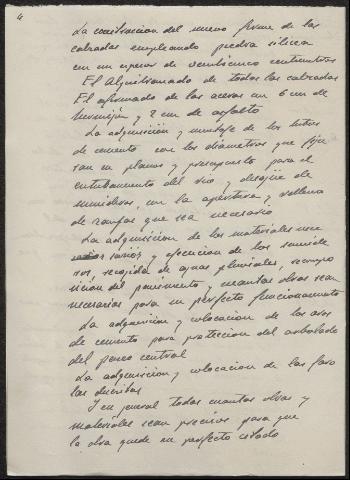 4
La construccion del nuevo firme de las
calzadas empleando piedra silicea
con un espesor de veinticinco centimetros
El Alquitranado de todas las calzadas
El afirmado de las aceras con 6 cm de
hormigón y 2 cm de asfalto
La adquisición y montaje de los tubos
de cemento con los diametros que fijan
en planos y presupuesto para el
entubamiento del rio, y desagüe de
sumideros, con la apertura y relleno
de zanjas que sea necesario
La adquisicion de los materiales nece
sarios y ejecucion de los sumide
ros, recogida de aguas pluviales, reempo
sicion del pavimento y cuantas obras sean
necesarias para su perfecto funcionamiento
La adquisicion y colocacion de los aros
de cemento para proteccion del arbolado
del paseo central
La adquisicion y colocacion de las faro
las descritas
Y en general todas cuantas obras y
materiales sean precisos para que
la obra quede en perfecto estado